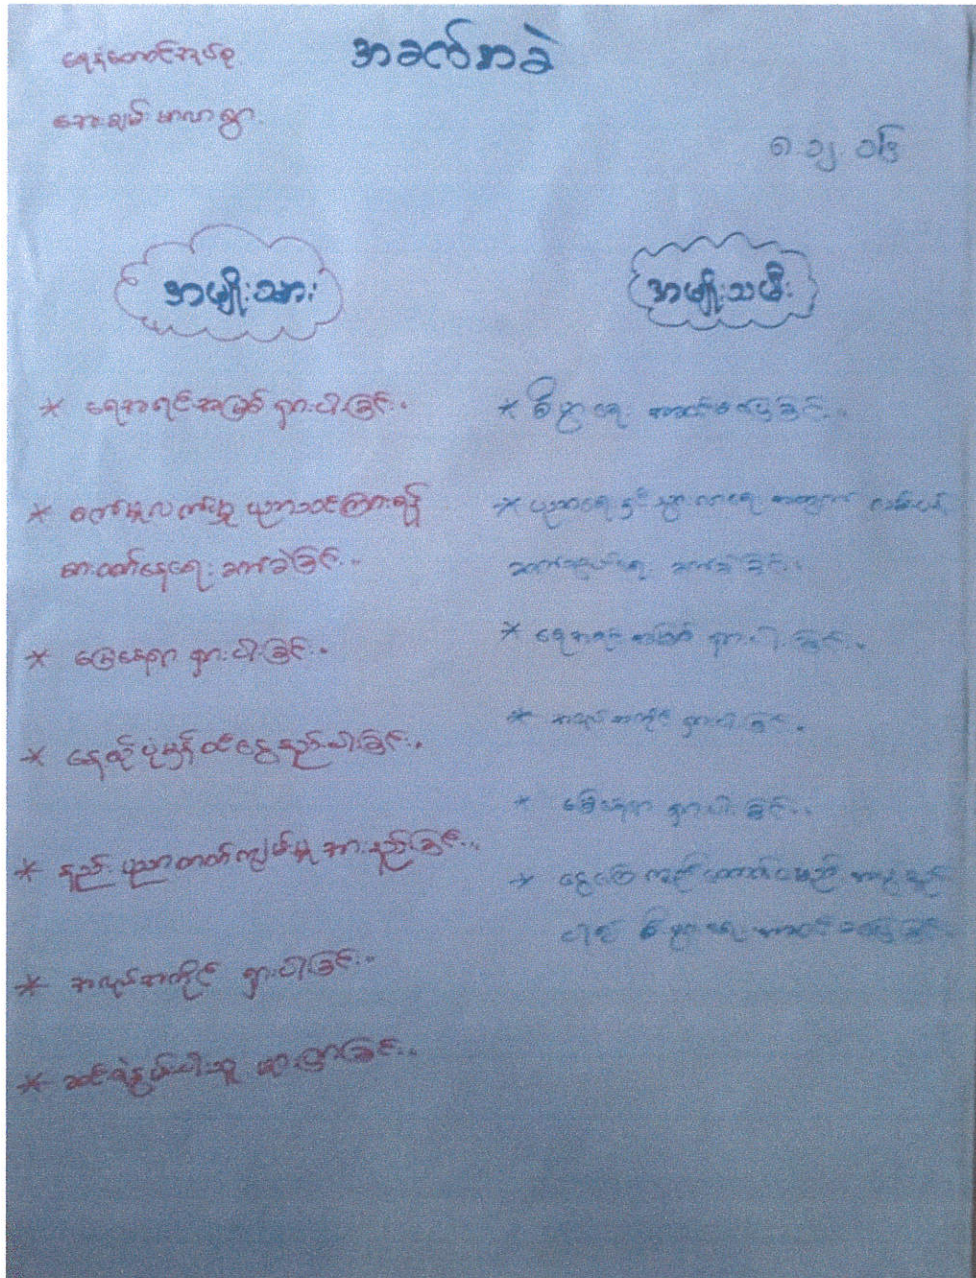 အခက်အခဲ
ရေနံတောင်အုပ်စု
အေးချမ်းမာလာရွာ
၈.၁၂.၁၆
အမျိုးသား
* ရေအရင်းအမြစ် ရှားပါးခြင်း။
* စက်မှုလက်မှု ပညာသင်ကြားရန်
စားဝတ်နေရေး ခက်ခဲခြင်း။
* မြေနေရာ ရှားပါးခြင်း။
* နေထိုင်ပုံမှန်ဝင်ငွေနည်းပါးခြင်း။
* နည်းပညာတတ်ကျွမ်းမှု အားနည်းခြင်း။
* အလုပ်အကိုင် ရှားပါးခြင်း။
* ဆင်းရဲနွမ်းပါးသူ များပြားခြင်း။
အမျိုးသမီး
* စီးပွားရေး အဆင်မပြေခြင်း။
* ပညာရေးနှင့် သွားလာရေး အတွက် လမ်းပန်း
ဆက်သွယ်ရေး ခက်ခဲခြင်း။
* ရေအရင်းအမြစ် ရှားပါးခြင်း။
* အလုပ်အကိုင် ရှားပါးခြင်း။
* မြေနေရာ ရှားပါးခြင်း။
* ငွေကြေး ထောက်ပံ့မည့် အဖွဲ့အစည်း
စီးပွားရေး အဆင်မပြေခြင်း။